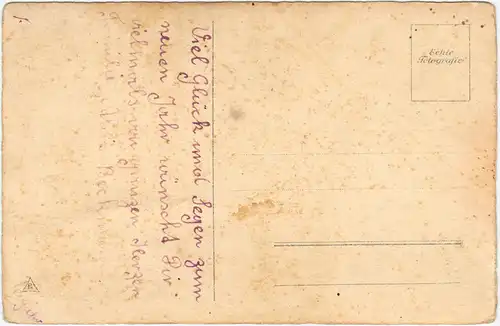 Viel Glück und Segen zum
neuen Jahr wünscht Dir
vielmals von ganzen Herzen
Echte
Fotografie